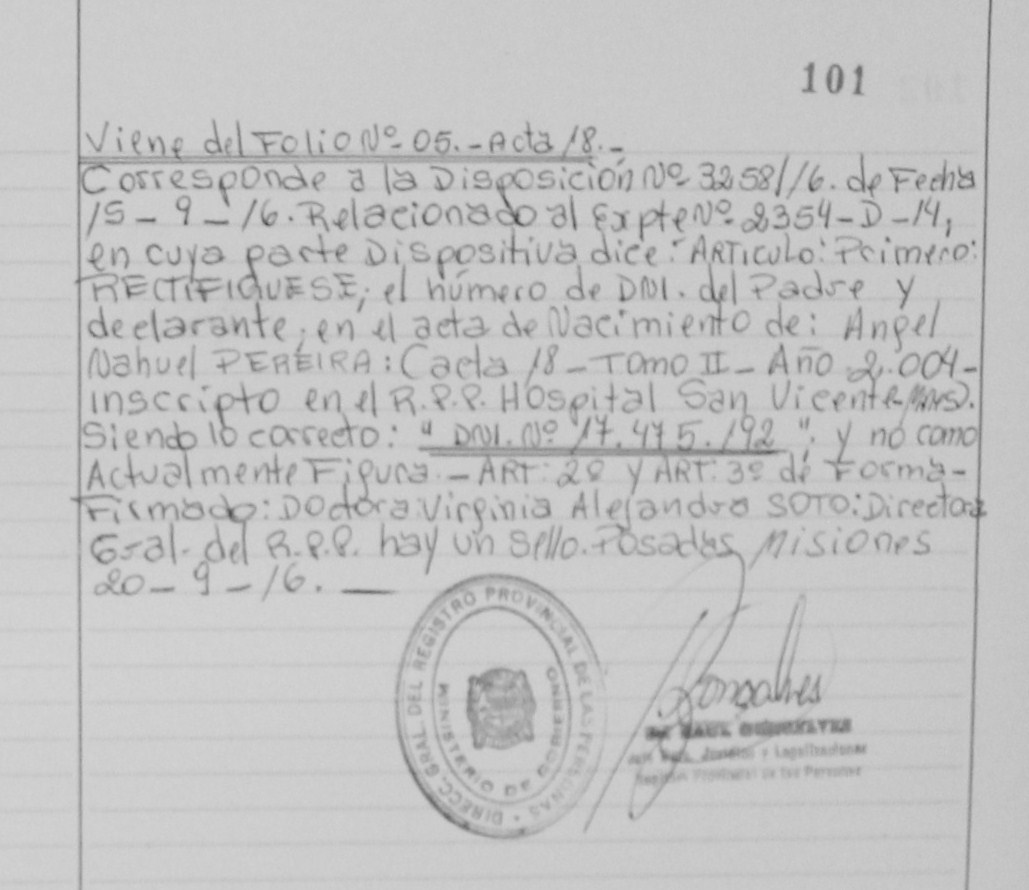 101
Viene del Folio Nº 05.-Acta 18.-
Corresponde a la Disposición Nº 3258//16. de Fecha
15-9-16. Relacionado al Expte Nº 2354-D-14,
en cuya parte Dispositiva dice: ARTiculo: Primero:
RECTIFIQUESE; el número de DNI. del Padre y
declarante; en el acta de Nacimiento de: Angel
Nahuel PEREIRA: Cacta 18-Tomo II-Año 2.004-
inscripto en el R.P.P. Hospital San Vicente Mnes).
Siendo lo correcto: "DNI. Nº 17.475.192". y no como
Actualmente Figura.-ART: 2º y ART: 3º de Forma-
Firmado: Doctora: Virginia Alejandra SOTO: Directora
Gral. del R.P.P. hay un Sello. Posadas, Misiones
20-9-16.-
DIRECC. GRAL. DEL REGISTRO PROVINCIAL DE LAS PERSONAS
MINISTERIO DE GOBIERNO
Gonsalves
RAUL GONSALVES
y Legalizaciones
Provincial de las Personas